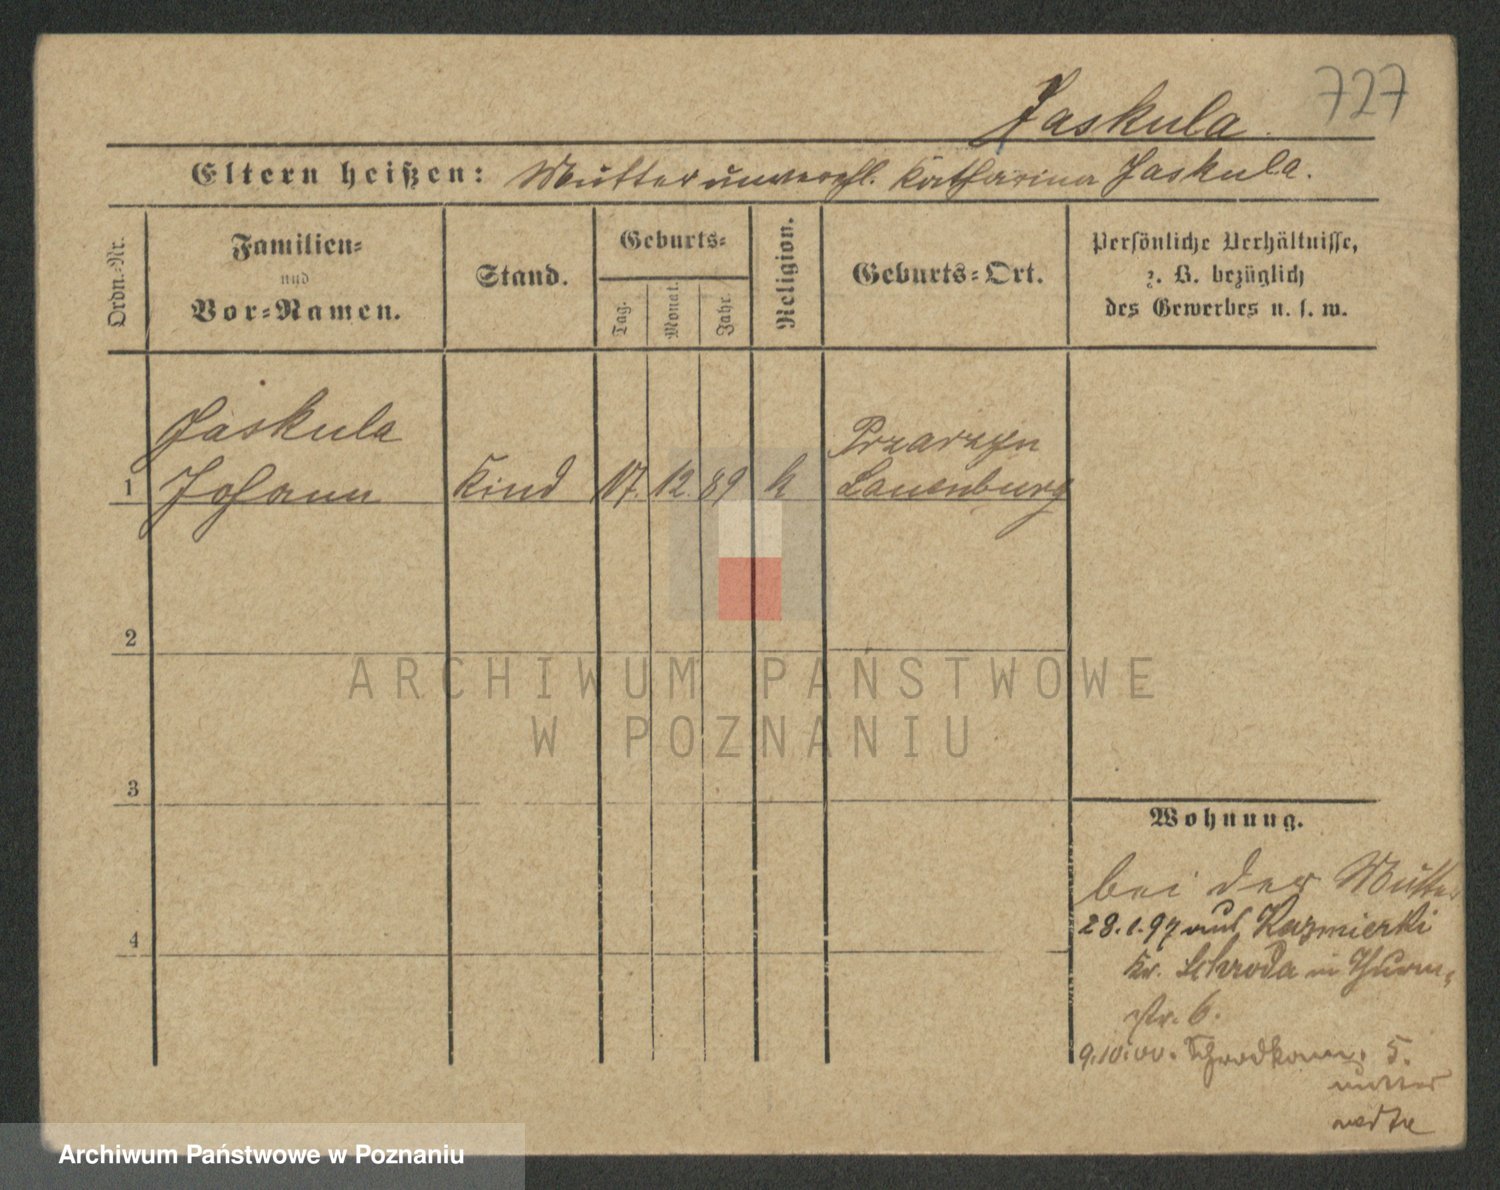 727
Jaskula.
Eltern heißen: Mutter unverehl. Katharina Jaskula.
Ordn.-Nr.
Familien-
und
Vor-Namen.
Stand.
Geburts-
Tag.
Monat.
Jahr.
Religion.
Geburts-Ort.
Persönliche Verhältnisse,
z. B. bezüglich
des Gewerbes u. s. w.
Jaskula
1 Johann Kind 17. 12. 89 k
Lauenburg
2
3
4
Wohnung.
bei der Mutter
28.1.97 aus Kazmierki
Kr. Schroda in Thurm-
str. 6.
9.10.00. 5.
mutter
ARCHIWUM PAŃSTWOWE
W POZNANIU
Archiwum Państwowe w Poznaniu